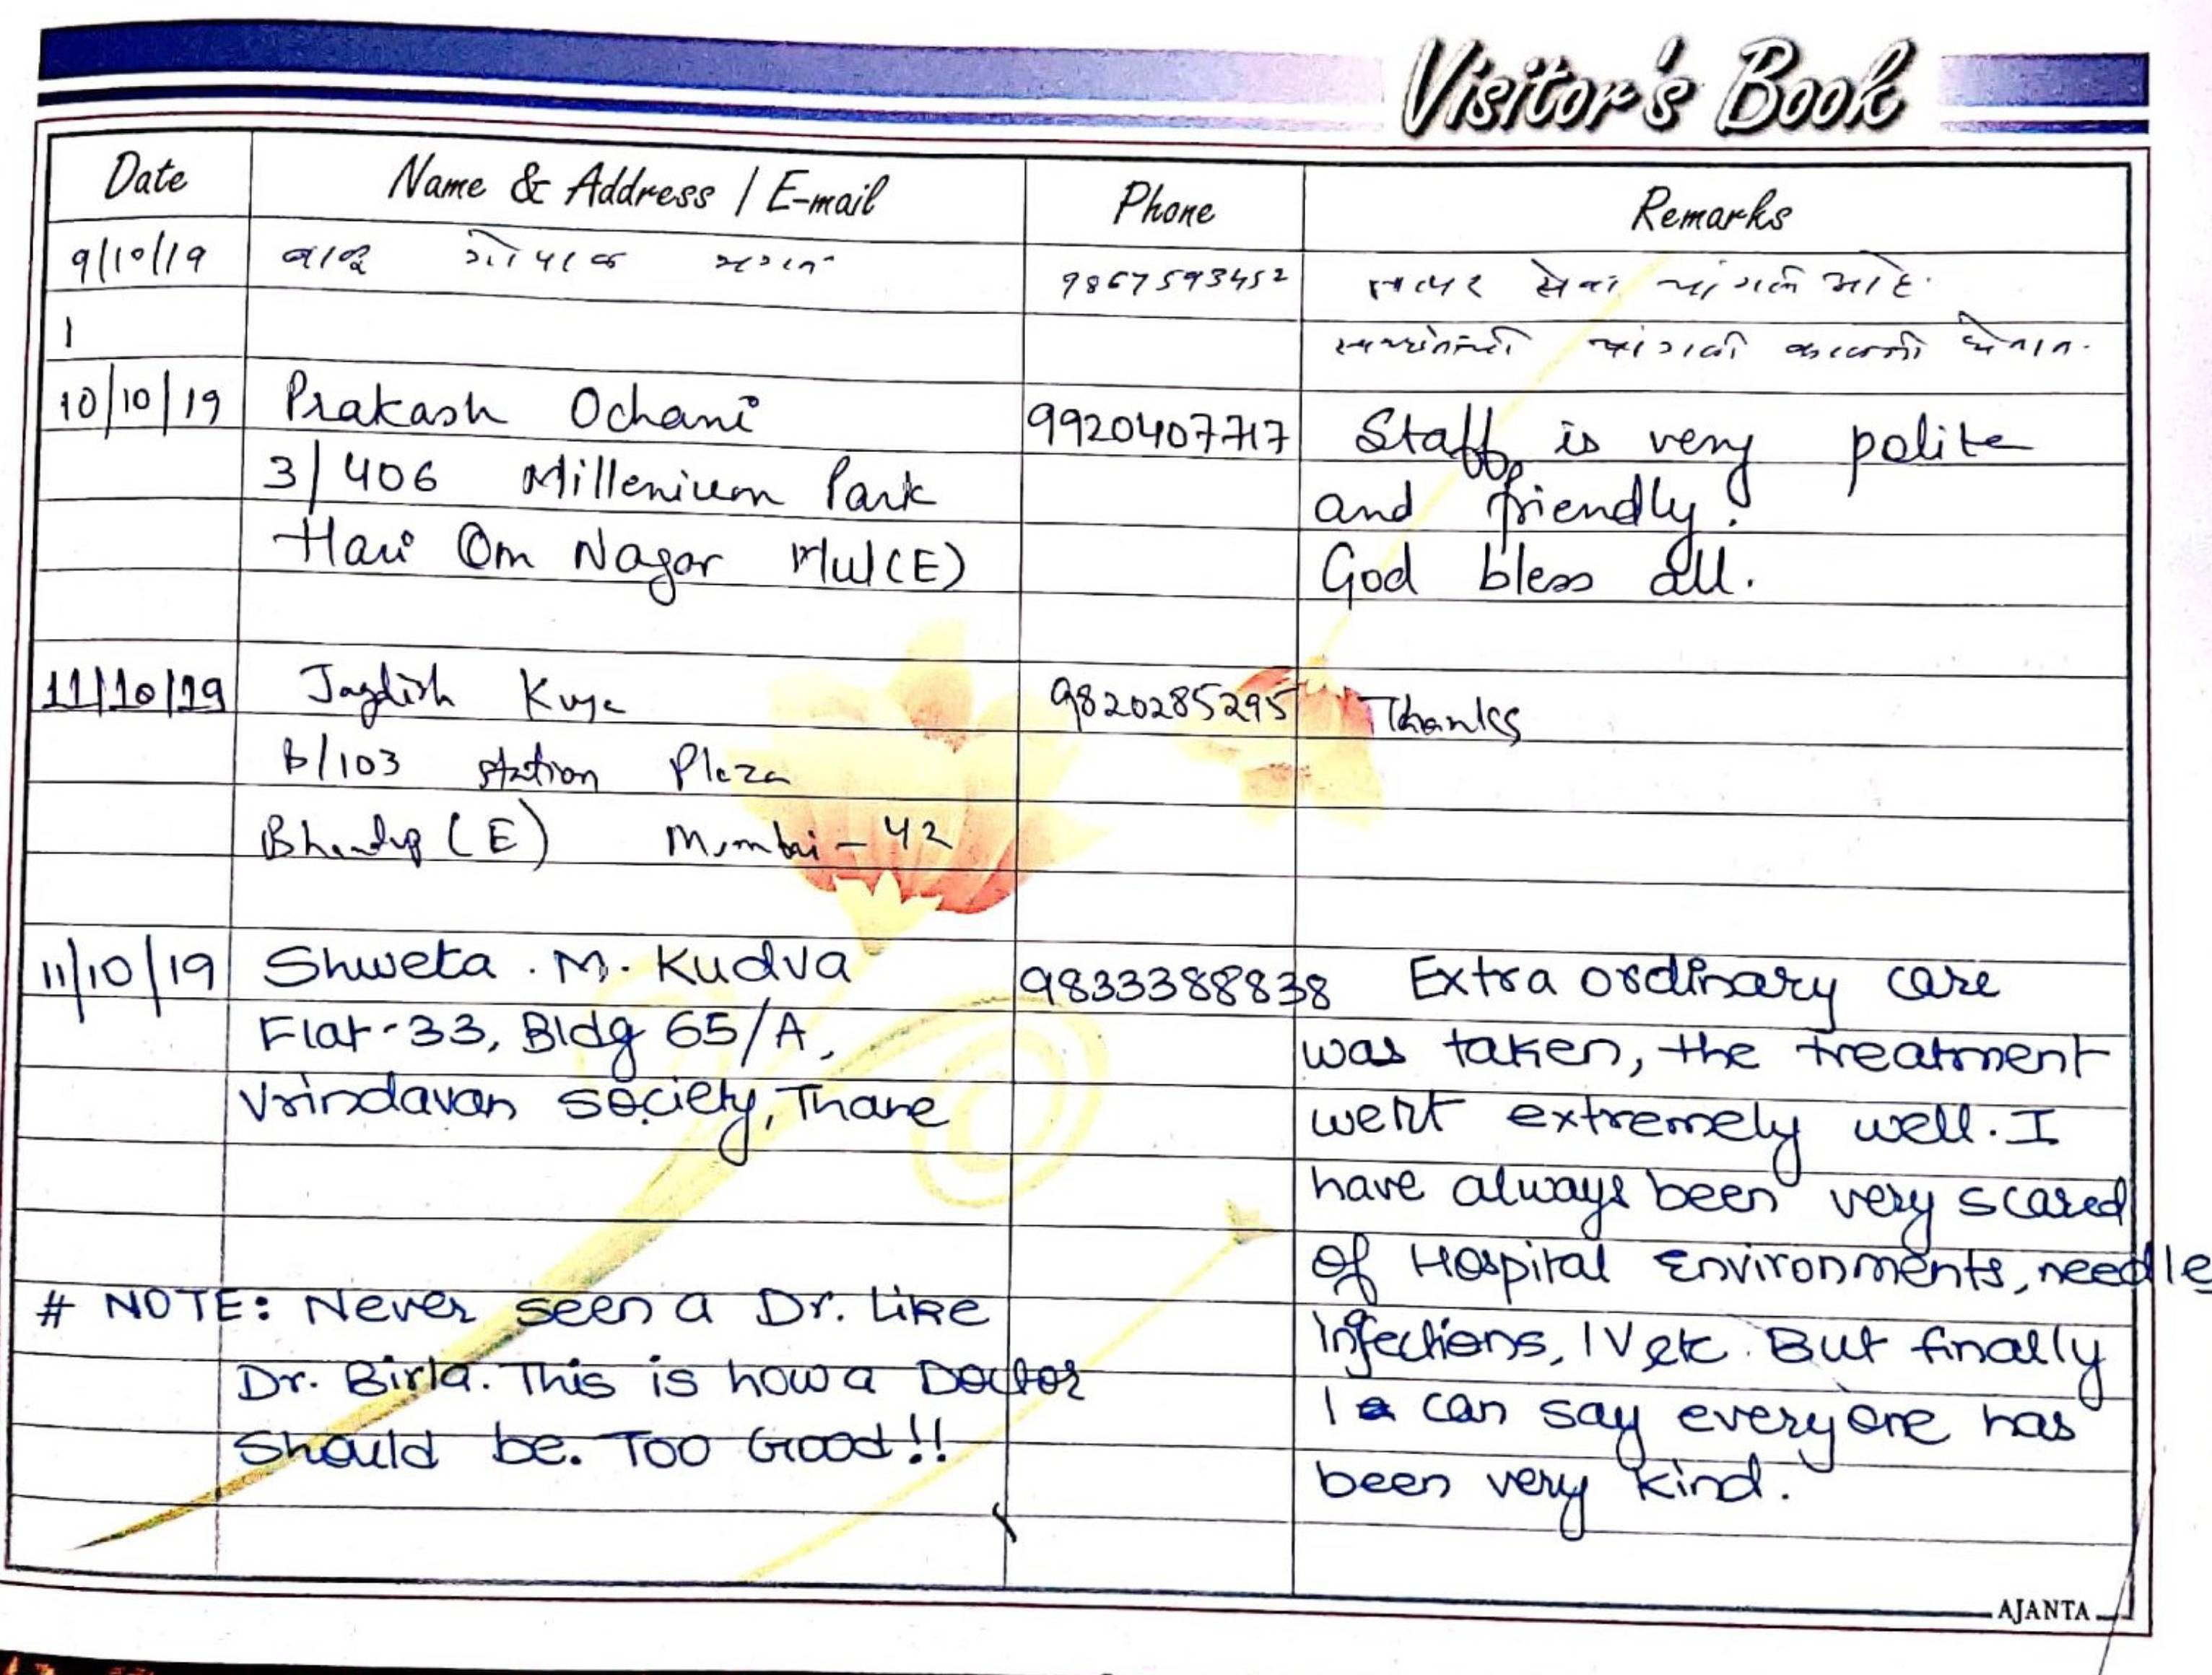 Visitor's Book
Date Name & Address / E-mail Phone Remarks
9/10/19 9867593452 सेवा चांगली आहे.
1 चांगली काळजी घेतात.
10/10/19 Prakash Ochani 9920407717 Staff is very polite
3/406 Millenium Park and friendly.
Hari Om Nagar Mul(E) God bless all.
11/10/19 Jagdish Kuya 9820285295 Thanks
B/103 station Plaza
Bhandup (E) Mumbai - 42
11/10/19 Shweta . M. Kudva 9833388838 Extra ordinary care
Flat-33, Bldg 65/A, was taken, the treatment
Vrindavan society, Thane went extremely well. I
have always been very scared
of Hospital Environments, needle
# NOTE: Never seen a Dr. Like Infections, IV etc. But finally
Dr. Birla. This is how a Doctor I can say everyone has
Should be. Too Good!! been very kind.
AJANTA